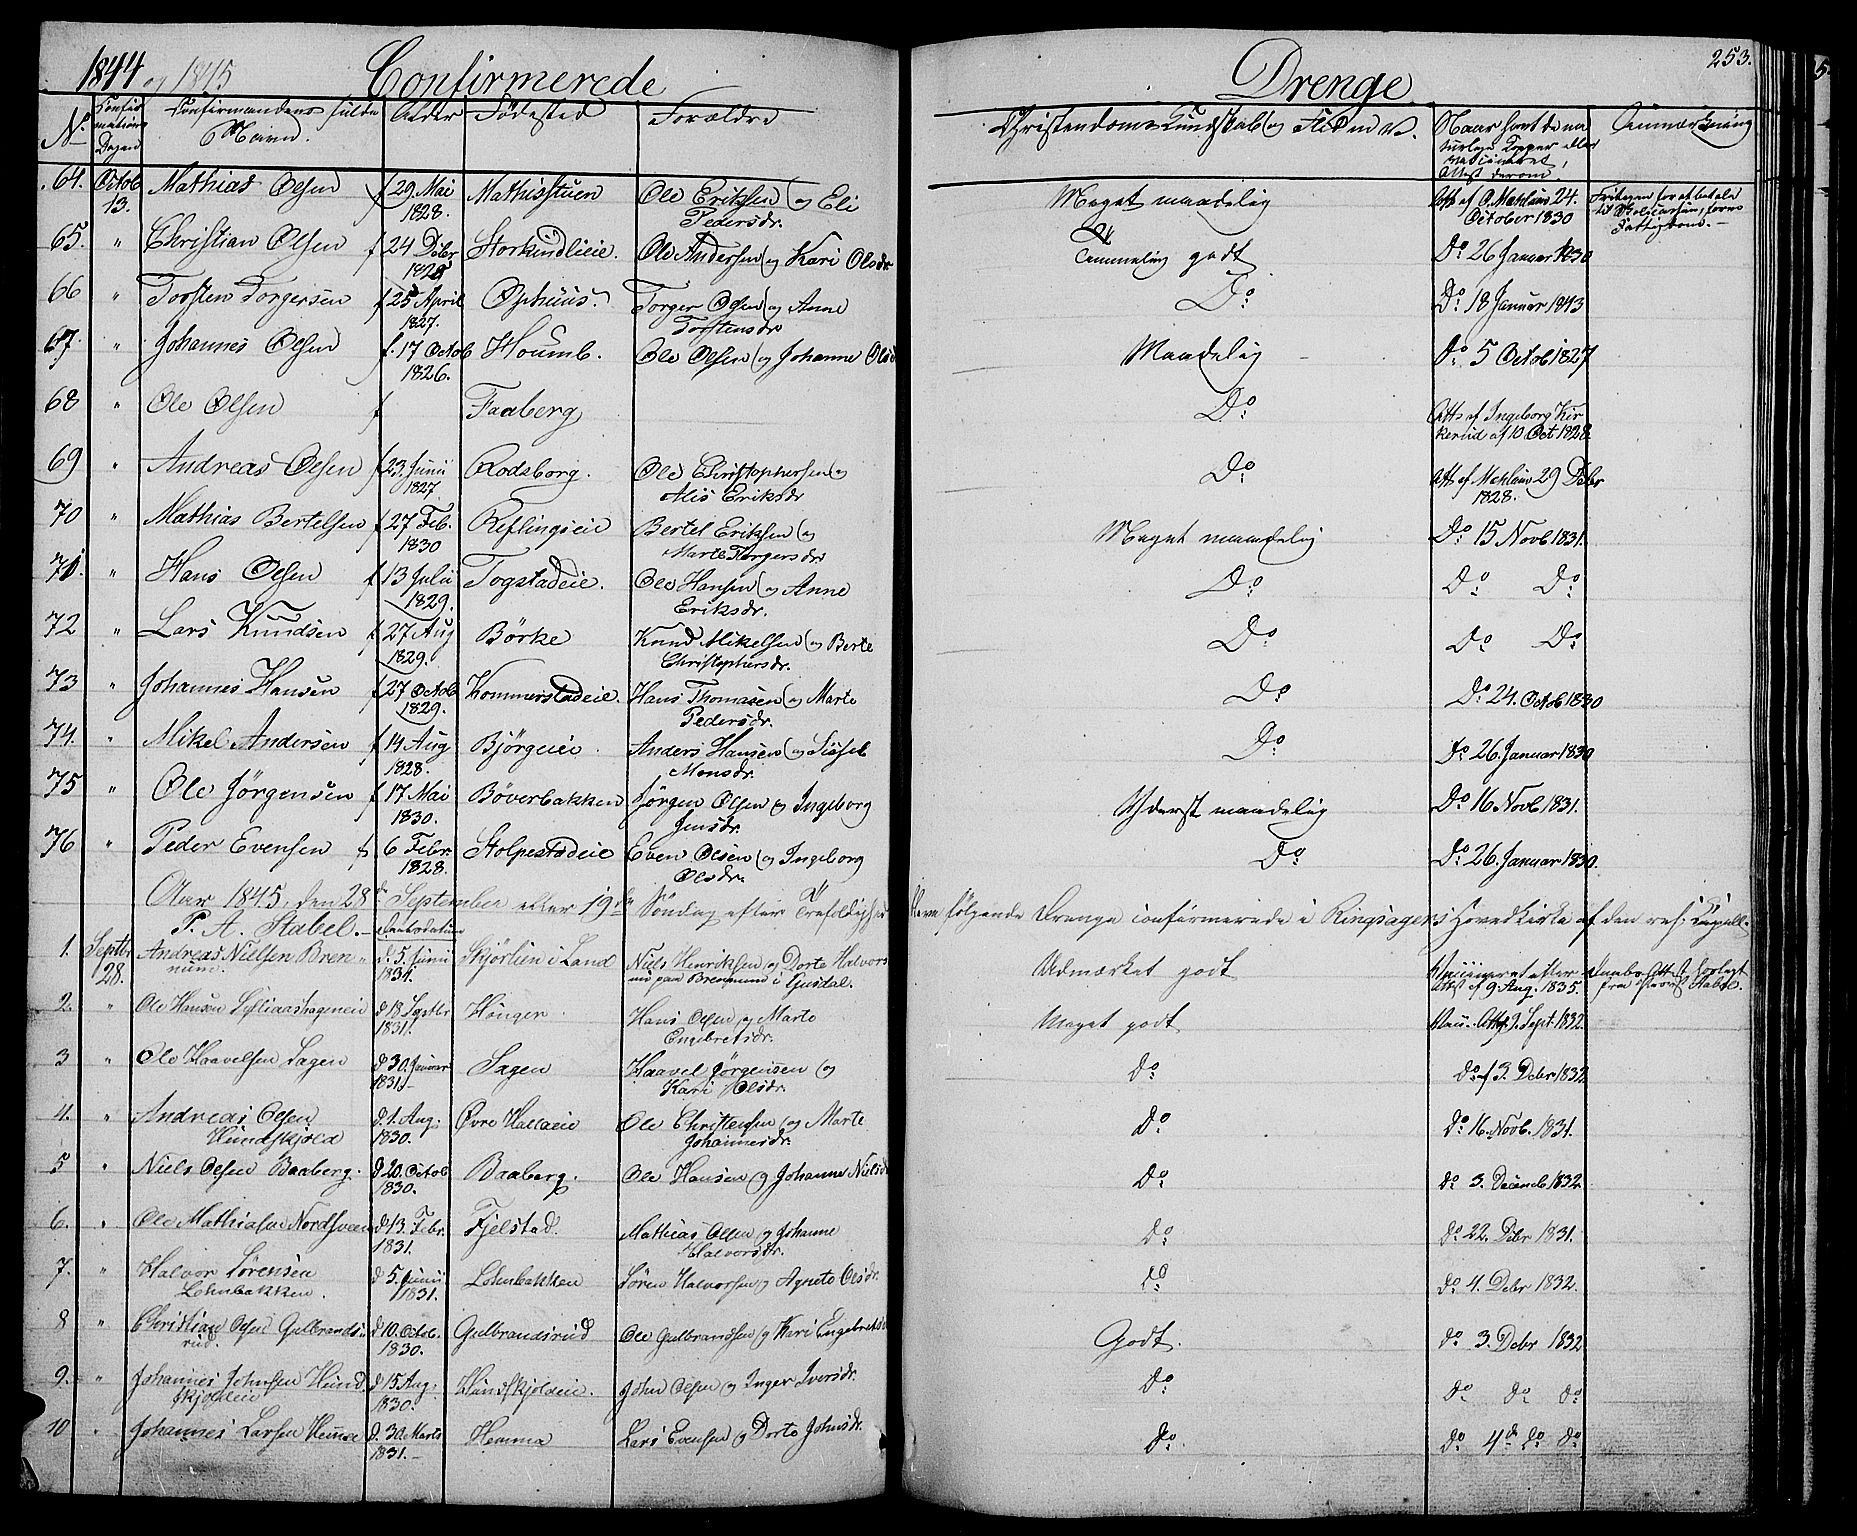 1844 og 1845 Confirmerede Drenge 253.
No Confirmations Dagen Confirmandens fulde Navn. Alder Fødested Forældre Christendoms Kundskab og Flid m. v. Naar havt de naturlige Kopper eller vaccineret, Attest derom. Anmærkning
64. Octob 13. Mathias Olsen f 29. Mai 1828. Mathisstuen Ole Eriksen og Eli Pedersdr. Meget maadelig Att: af O. Mæhlum 24. October 1830
65. " Christian Olsen f 24 Debr 1828 Ole Andersen og Kari Olsdr Temmelig godt Do 26 Januar 1830
66 " Torsten Torgersen f 25 April 1827. Ophuus. Torger Olsen og Anne Torstensdr Do Do 18 Januar 1843
67. " Johannes Olsen f. 17 Octob 1826. Houmb. Ole Olsen og Johanne Olsd Maadelig Do 5 Octob 1827
68 " Ole Olsen f Faaberg Do Att: af Ingeborg Kirkerud af 10 Oct 1828
69 " Andreas Olsen f 23. Junii 1827. Rodsborg. Ole Christophersen og Alis Eriksdr Do Att: af Mæhlum 29 Debr 1828.
70 " Mathias Bertelsen f 27 Feb. 1830 Reflingseie Bertel Eriksen og Marte Torgersdr Meget maadelig Do 15 Novb 1831.
71. " Hans Olsen f 13 Julii 1829. Togstadeie. Ole Hansen og Anne Eriksdr. Do Do Do
72 " Lars Knudsen f 27 Aug 1829. Børke Knud Mikelsen og Berte Christophersdr. Do Do Do
73 " Johannes Hansen f 27 Octob 1829. Kommerstadeie. Hans Thomasen og Marte Pedersdr. Do Do 24. Octob 1830
74. " Mikel Andersen f 14 Aug 1828. Bjørgeeie. Anders Hansen og Sisel Monsdr. Do Do 26. Januar 1830
75 " Ole Jørgensen f 17 Mai 1830. Bøverbakken Jørgen Olsen og Ingeborg Jensdr. Yderst maadelig Do 16 Novb 1831.
76 " Peder Evensen f 6 Febr. 1828. Stolpestadeie Even Olsen og Ingeborg Olsdr. Do Do 26. Januar 1830.
Aar 1845, den 28de September eller 19de Søndag efter Trefoldighed bleve følgende Drenge confirmerede i Ringsagers Hovedkirke af den res: Capell.
P. A. Stabel.
1. Septbr 28. Andreas Nielsen Brennum. d. 5. Junii 1831. Skjørlien i Land Niels Henriksen og Dorte Halvors Udmærket godt Vaccineret efter Attest af 9. Aug. 1835. Daabs Attest forlagt fra Provst
2. " Ole Hansen d 18 Septbr 1831. Hønger. Hans Olsen og Marte Engebretsdr. Meget godt Vacc. Att: 9. Sept. 1832.
3 " Ole Haavelsen Sagen d. 30. Januar 1831. Sagen Haavel Jørgensen og Kari Olsdr. do do af 3. Debr 1832.
4. " Andreas Olsen Hundskjold d. 1. Aug: 1830. Øvre Hallaeie Ole Christensen og Marte Johannesdr. do do 16. Novb. 1831.
5 " Niels Olsen Baaberg. d 20. Octob. 1830. Baaberg. Ole Hansen og Johanne Nielsd do do 3. Decemb 1832.
6. " Ole Mathiasen Nordsveen d 13. Febr. 1831. Fjelstad. Mathias Olsen og Johanne Halvorsdr. do do 22. Debr 1831.
7. " Halvor Sørensen Lohnbakken. d 5. Junii 1831. Lohnbakken Søren Halvorsen og Agnete Olsdr. do do 4. Debr 1832.
8 " Christian Olsen Gulbrandsrud. d 10. Octob. 1830. Gulbrandsrud Ole Gulbrandsen og Kari Engebretsd Godt. do 3. Debr 1832
9. " Johannes Johnsen Hundskjoldeie d 15 Aug: 1830. Hundskjoldeie. John Olsen og Inger Iversdr. do do do do
10 " Johannes Larsen Hemma d. 30. Marts 1831. Hemma Lars Evensen og Dorte Johnsdr. do. do 4de do do